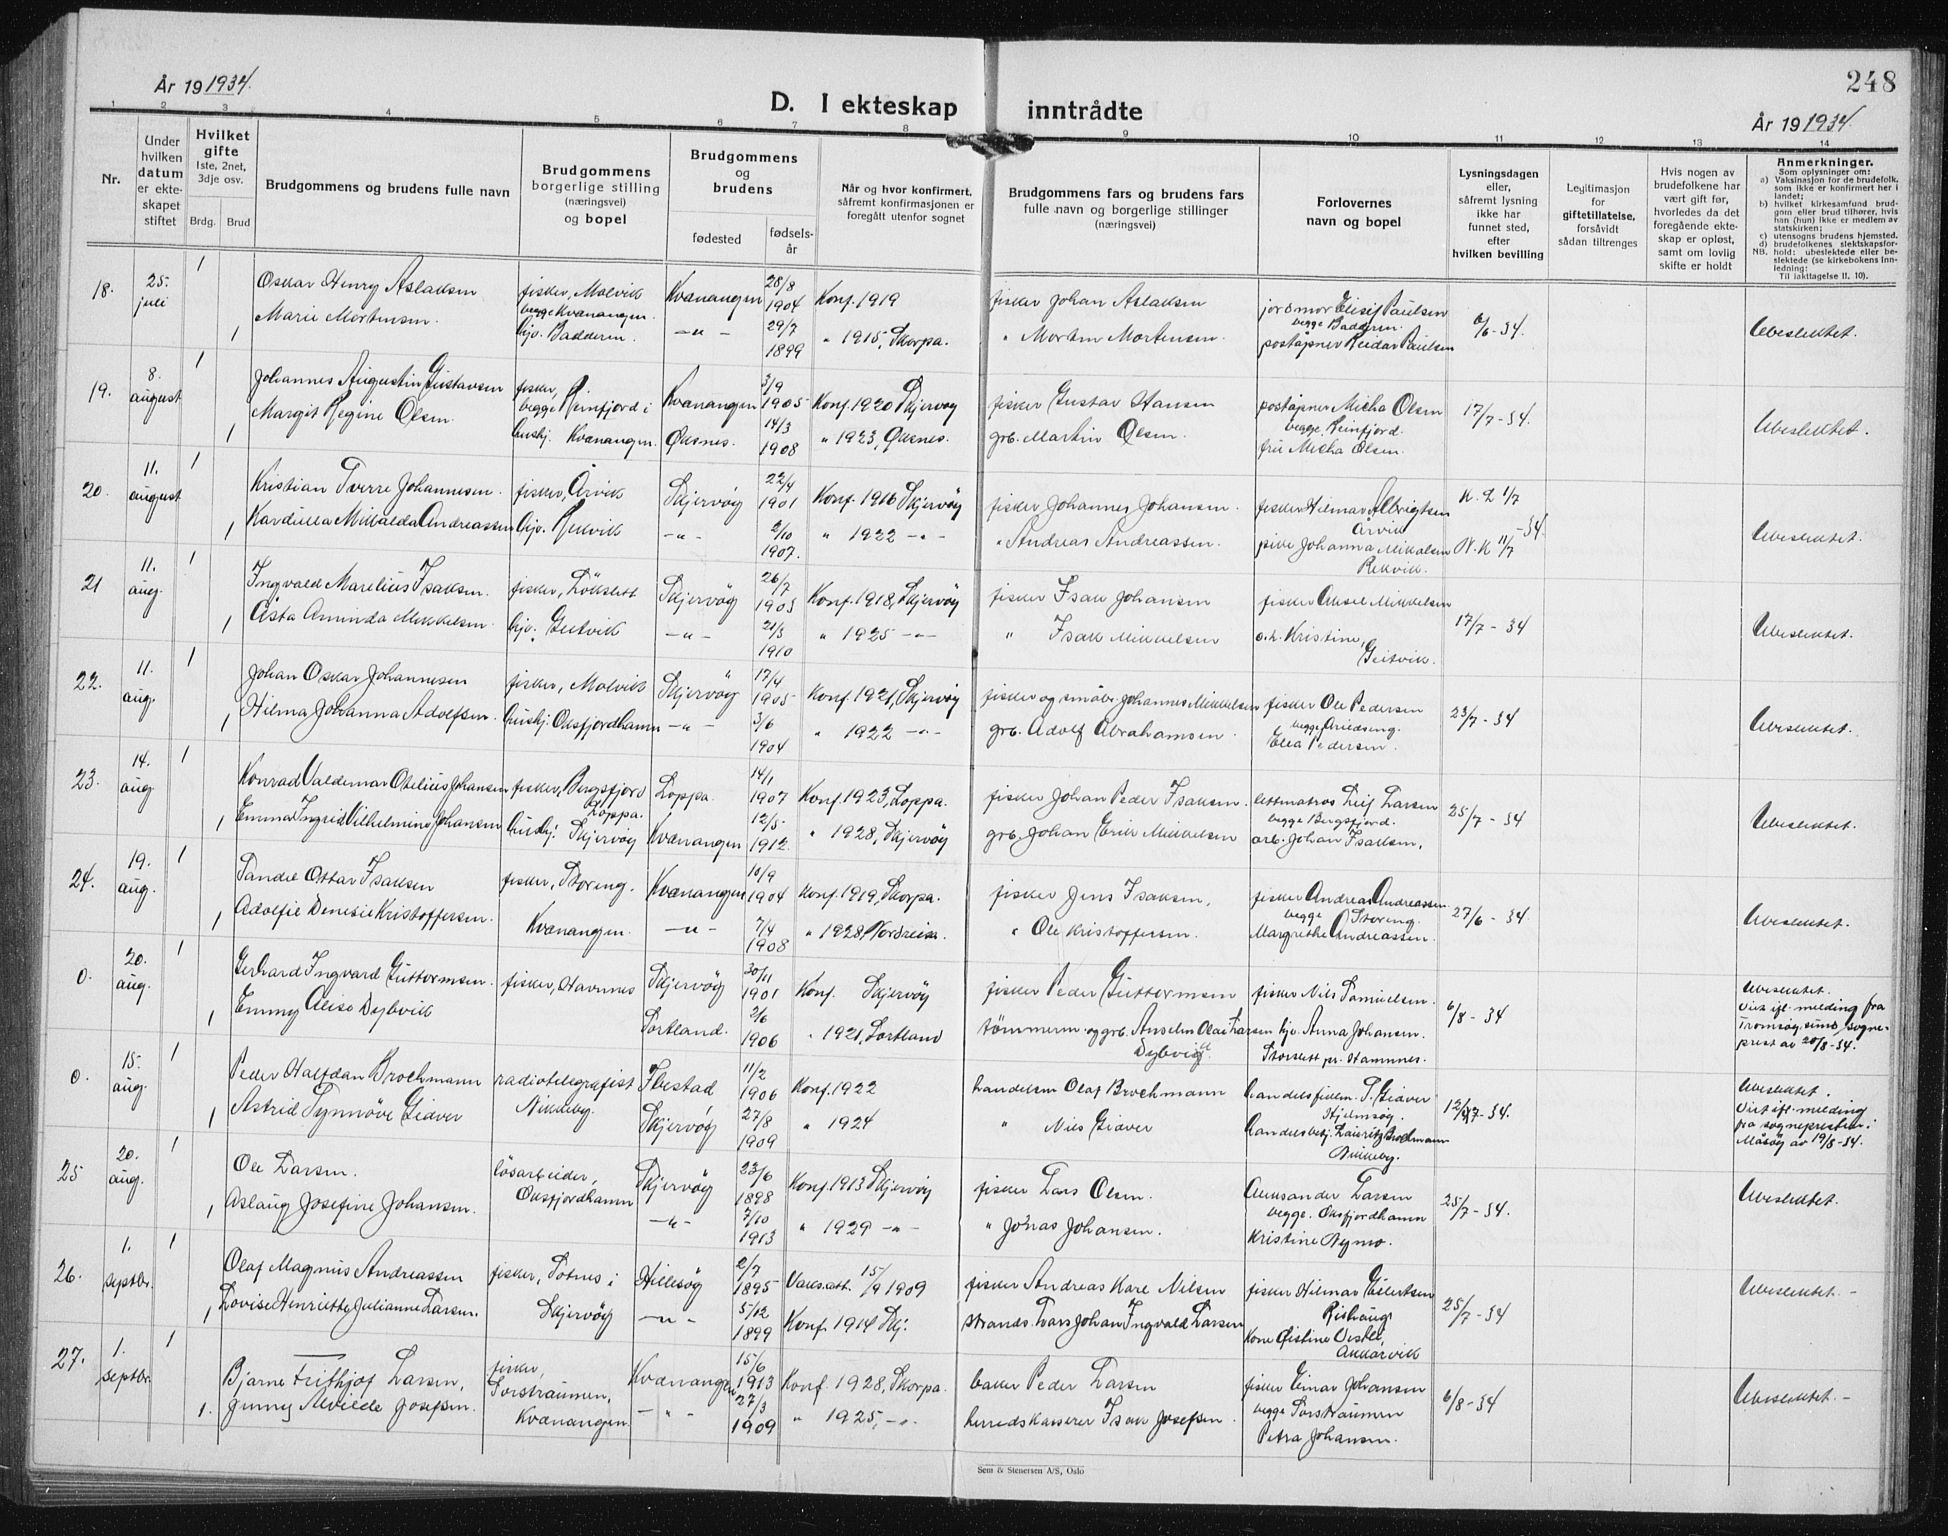 År 19 1934.
248
D. I ekteskap inntrådte
År 19 1934.
1 2 3 4 5 6 7 8 9 10 11 12 13 14
Nr.
Under hvilken datum er ekteskapet stiftet
Hvilket gifte 1ste, 2net, 3dje osv.
Brdg. Brud
Brudgommens og brudens fulle navn
Brudgommens borgerlige stilling (næringsvei) og bopel
Brudgommens og brudens
fødested fødselsår
Når og hvor konfirmert, såfremt konfirmasjonen er foregått utenfor sognet
Brudgommens fars og brudens fars fulle navn og borgerlige stillinger (næringsvei)
Forlovernes navn og bopel
Lysningsdagen eller, såfremt lysning ikke har funnet sted, efter hvilken bevilling
Legitimasjon for giftetillatelse, forsåvidt sådan tiltrenges
Hvis nogen av brudefolkene har vært gift før, hvorledes da det foregående ekteskap er opløst, samt om lovlig skifte er holdt
Anmerkninger.
Som oplysninger om:
a) Vaksinasjon for de brudefolk, som ikke er konfirmert her i landet;
b) hvilket kirkesamfund brudgom eller brud tilhører, hvis han (hun) ikke er medlem av statskirken;
c) utensogns brudens hjemsted.
d) brudefolkenes slektskapsforhold: ubeslektede eller beslektede (se kirkebokens innledning:
NB.
Til iakttagelse II, 10).
18. 25. juli 1 Oskar Henry Aslaksen fisker, Molvik Kvænangen 28/8 1904 Konf. 1919 fisker Johan Aslaksen jordmor Elisif Paulsen 6/6-34. Ubeslektet.
1 Marie Mortensen. begge Kvænangen. hjv. Badderen. -"- 29/7 1899 " 1915, Skorpa. " Morten Mortensen. begge Badderen. poståpner Reidar Paulsen
19. 8. august 1 Johannes Augustin Gustavsen fisker, Kvænangen 3/9 1905 Konf. 1920 Skjervøy fisker Gustav Hansen poståpner Micha Olsen 17/7-34. Ubeslektet.
1 Margit Regine Olsen. begge Reinfjord i hushj. Kvænangen. Øksnes. 14/3 1908 " 1923, Øksnes. grb. Martin Olsen. begge Reinfjord. fru Micha Olsen.
20. 11. august 1 Kristian Sverre Johannesen. fisker, Årvik Skjervøy 22/4 1901 Konf. 1916 Skjervøy fisker Johannes Johansen. fisker Hilmar Albrigtsen Årvik K. L 1/7 -34. Ubeslektet.
1 Kardulla Mikalda Andreassen hjv. Rekvik -"- 2/10 1907. " 1922 -"- " Andreas Andreassen. pike Johanna Mikalsen Rekvik. N. K 11/7
21 11. aug. 1 Ingvald Marelius Isaksen. fisker, Løkslett Skjervøy 26/7 1903 Konf. 1918, Skjervøy fisker Isak Johansen fisker Aksel Mikkelsen 17/7-34 Ubeslektet.
1 Asta Aminda Mikkelsen. hjv. Geitvik -"- 21/3 1910 " 1925 -"- " Isak Mikkelsen o.h. Kristine, Geitvik.
22. 11. aug. 1 Johan Oskar Johannesen fisker, Molvik Skjervøy 17/4 1905 Konf. 1921, Skjervøy fisker og småbr. Johannes Mikkelsen fisker Ole Pedersen 23/7-34 Ubeslektet.
1 Hilma Johanna Adolfsen. hushj. Oksfjordhamn -"- 3/6 1904 " 1922 -"- grb. Adolf Abrahamsen. begge Elea Pedersen.
23. 14. aug. 1 Konrad Valdemar Otelius Johansen fisker, Bergsfjord Loppa. Loppa. 14/1 1907 Konf. 1923, Loppa. fisker Johan Peder Isaksen. lettmatros Leif Larsen 25/7-34 Ubeslektet.
1 Emma Ingrid Vilhelmine Johansen hushj. Skjervøy Kvænangen 12/5 1912. " 1928, Skjervøy grb. Johan Erik Mikkelsen begge Bergsfjord. arb. Johan Isaksen.
24. 19. aug. 1 Sande Ottar Isaksen fisker, Storeng. Kvænangen 10/9 1904 Konf. 1919, Skorpa. fisker Jens Isaksen, fisker Andreas Andreassen 27/6-34 Ubeslektet.
1 Adolfie Denesie Kristoffersen. Kvænangen. -"- 7/4 1908 " 1928, Nordreisa. " Ole Kristoffersen. begge Storeng. Margrethe Andreassen.
0. 20. aug. 1 Gerhard Ingvard Guttormsen. fisker, Havnnes Skjervøy 30/11 1901 Konf. Skjervøy fisker Peder Guttormsen fisker Nils Samuelsen. 6/8-34 Ubeslektet.
1 Emmy Alise Dybvik Sortland. 2/6 1906 " 1921, Sortland tømmerm. og grb. Anselm Olai Larsen Dybvig. hjv. Anna Johansen. Storslett pr. Hamnnes. Vist efl. melding fra Tromsøysund sogneprest av 20/8-34.
0. 15. aug. 1 Peder Halfdan Brochmann radiotelegrafist Ibestad 11/2 1906 Konf. 1922 handelsm Olaf Brochmann handelsfullm. S. Giæver Hjelmsøy. 12/7-34. Ubeslektet.
1 Astrid Synnøve Giæver Nikkeby. Skjervøy 27/8 1909 " 1924 " Nils Giæver handelsbetj. Lauritz Brochmann Nikkeby. Vist efl. melding fra sognepresten i Måsøy av 19/8-34.
25 20. aug. 1 Ole Larsen. løsarbeider, Skjervøy 23/6 1898 Konf. 1913 Skjervøy fisker Lars Olsen. Aleksander Larsen 25/7-34. Ubeslektet.
1 Aslaug Josefine Johansen. Oksfjordhamn -"- 7/10 1913 " 1929 -"- " Jonas Johansen. begge. Oksfjordhamn Kristine Nymo.
26. 1. septbr. 1 Olaf Magnus Andreassen fisker, Sotnes i Hillesøy 2/7 1895 Vaks.att. 15/9 1909 fisker Andreas Kare Nilsen fisker Hilmar Eilertsen Rishaug. 25/7-34 Ubeslektet.-
1 Lovise Henriette Julianne Larsen. Skjervøy -"- 5/12 1899 Konf. 1914 Skj. strands. Lars Johan Ingvald Larsen Kone Akkarvik
27. 1. septbr. 1 Bjarne Frithjof Larsen, fisker, Kvænangen 15/6 1913 Konf. 1928, Skorpa. baker Peder Larsen fisker Einar Johansen 6/8-34 Ubeslektet.-
1. Jenny Alvilde Josefsen. Sorstraumen, Kvænangen. -"- 27/3 1909 " 1925, -"- herredskasserer Isak Josefsen. begge Sorstraumen Petra Johansen.
Sem & Stenersen A/S, Oslo